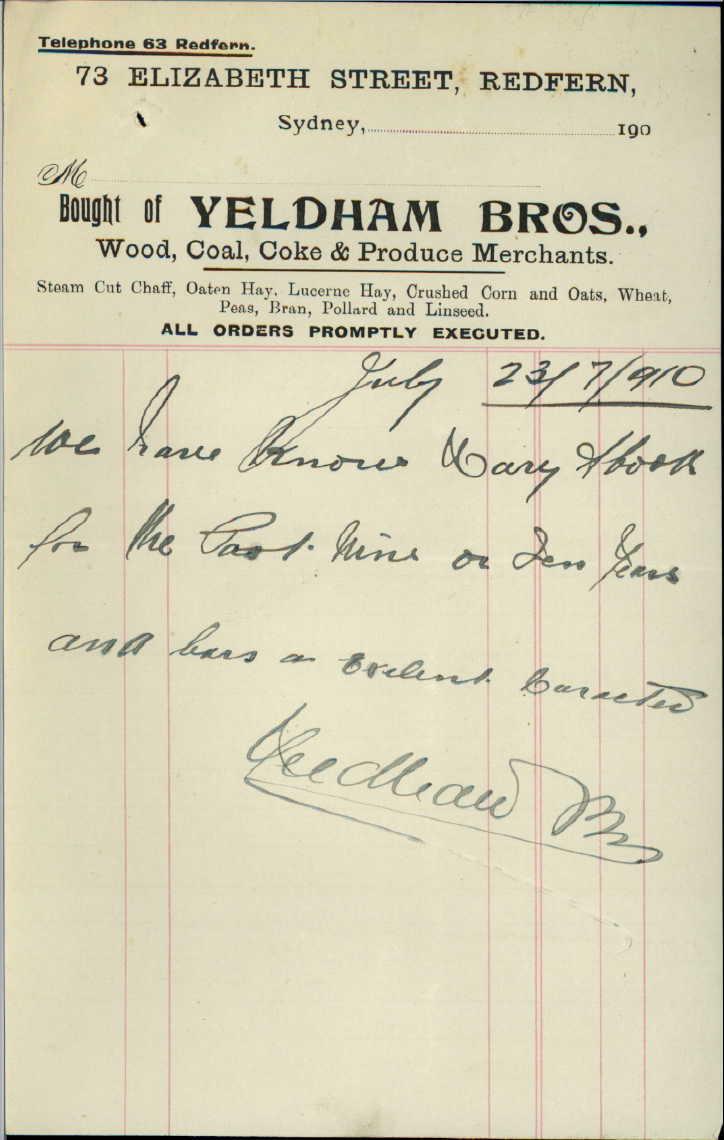 Telephone 63 Redfern.
73 ELIZABETH STREET, REDFERN,
Sydney, 190
M
Bought of YELDHAM BROS.,
Wood, Coal, Coke & Produce Merchants.
Steam Cut Chaff, Oaten Hay, Lucerne Hay, Crushed Corn and Oats, Wheat,
Peas, Bran, Pollard and Linseed.
ALL ORDERS PROMPTLY EXECUTED.
July 23/7/910
We have Known
for the Past Nine or Ten Years
and bars a Exelent Caracter
Yeldham Bros